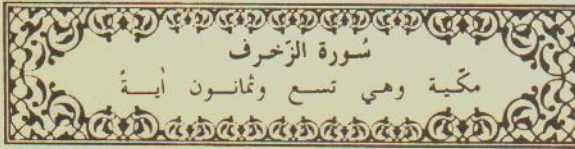 سُورة الزّخرف
مكّية وهي تسع وثمانون أيةً